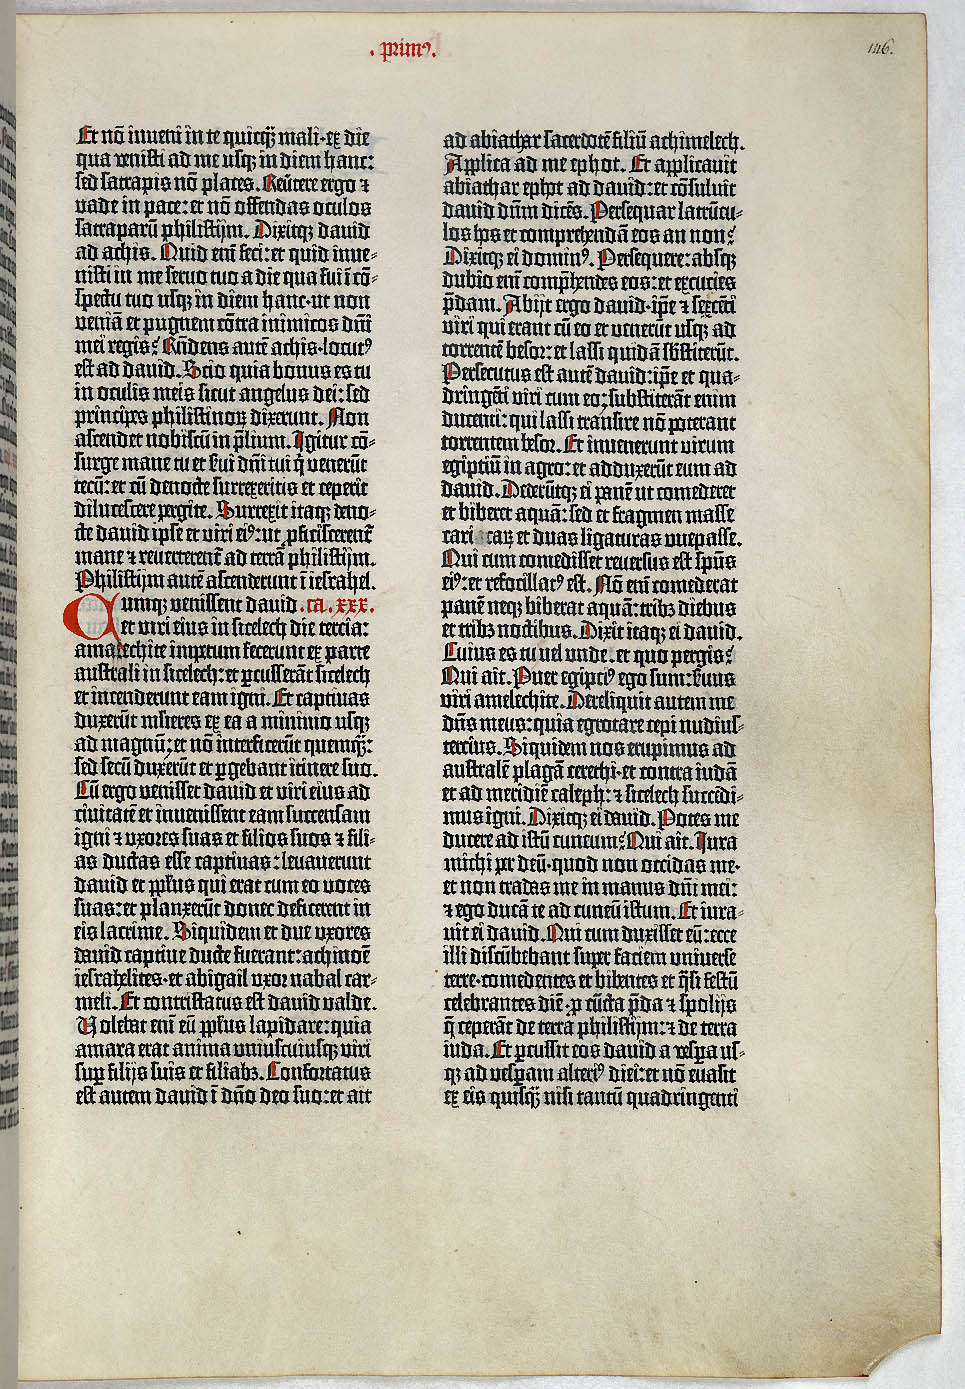 . primꝰ.
146.
Et nō inveni in te quicq̄ꝫ mali·ex die
qua venisti ad me usqꝫ in diem hanc:
sed satrapis nō places. Reūtere ergo ⁊
vade in pace: et nō offendas oculos
satraparū philistijm. Dixitqꝫ david
ad achis. Quid em̄ feci: et quid inve-
nisti in me servo tuo a die qua fui ī cō-
spectu tuo usqꝫ in diem hanc·ut non
veniā et pugnem cōtra inimicos dn̄i
mei regis? Rn̄dens autē achis·locutꝰ
est ad david. Scio quia bonus es tu
in oculis meis sicut angelus dei: sed
principes philistinoꝝ dixerunt. Non
ascendet nobiscū in p̄lium. Igitur cō-
surge mane tu et s̄ui dn̄i tui q̄ venerūt
tecū: et cū de nocte surrexeritis et ceperit
dilucescere pergite. Surrexit itaqꝫ de no-
cte david ipse et viri eiꝰ: ut ꝓficiscerent᷑
mane ⁊ reverterent᷑ ad terrā philistijm.
Philistijm autē ascenderunt ī iesrahel.
Cumqꝫ venissent david .ca. xxx.
et viri eius in sicelech die tercia:
amalechite impetum fecerunt ex parte
australi in sicelech: et ꝑcusserāt sicelech
et incenderunt eam igni. Et captivas
duxerūt mlieres ex ea a minimo usqꝫ
ad magnū: et nō interficerūt quemq̄ꝫ:
sed secū duxerūt et ꝑgebant itinere suo.
Cū ergo venisset david et viri eius ad
civitatē et invenissent eam succensam
igni ⁊ uxores suas et filios suos ⁊ fili-
as ductas esse captivas: levaverunt
david et pp̄lus qui erat cum eo voces
suas: et planxerūt donec deficerent in
eis lacrime. Siquidem et due uxores
david captive ducte fuerant: achinoē
iesrahelites·et abigail uxor nabal car-
meli. Et contristatus est david valde.
Volebat em̄ eū pp̄lus lapidare: quia
amara erat anima uniuscuiusqꝫ viri
suꝑ filijs suis et filiabꝫ. Confortatus
est autem david ī dn̄o deo suo: et ait
ad abiathar sacerdotē filiū achimelech.
Applica ad me ephot. Et applicavit
abiathar ephot ad david: et cōsuluit
david dn̄m dicēs. Persequar latrūcu-
los hos et comprehendā eos an non?
Dixitqꝫ ei dominꝰ. Persequere: absqꝫ
dubio em̄ comp̄hendes eos: et excucies
p̄dam. Abijt ergo david·ip̄e ⁊ sexcēti
viri qui erant cū eo et venerūt usqꝫ ad
torrentē besor: et lassi quidā sb̄stiterūt.
Persecutus est autē david: ip̄e et qua-
dringēti viri cum eo; substiterāt enim
ducenti: qui lassi transire nō poterant
torrentem besor. Et invenerunt virum
egiptiū in agro: et adduxerūt eum ad
david. Dederūtqꝫ ei panē ut comederet
et biberet aquā: sed et fragmen masse
caricaꝝ et duas ligaturas uve passe.
Qui cum comedisset reversus est sp̄us
eiꝰ: et refocillatꝰ est. Nō em̄ comederat
panē neqꝫ biberat aquā: tribꝫ diebus
et tribꝫ noctibus. Dixit itaqꝫ ei david.
Cuius es tu vel unde·et quo pergis?
Qui ait. Puer egiptiꝰ ego sum: s̄vus
viri amelechite. Dereliquit autem me
dn̄s meus: quia egrotare cepi nudius-
tercius. Siquidem nos erupimus ad
australē plagā cerethi·et contra iudā
et ad meridiē caleph: ⁊ sicelech succēdi-
mus igni. Dixitqꝫ ei david. Potes me
ducere ad istū cuneum? Qui ait. Iura
michi per deū·quod non occidas me·
et non tradas me in manus dn̄i mei:
⁊ ego ducā te ad cuneū istum. Et iura-
vit ei david. Qui cum duxisset eū: ecce
illi discūbebant super faciem universe
terre·comedentes et bibentes et q̄si festū
celebrantes diē·ꝓ cūcta p̄da ⁊ spolijs
q̄ ceperāt de terra philistijm: ⁊ de terra
iuda. Et ꝑcussit eos david a vesꝑa us-
qꝫ ad vesꝑam alteriꝰ diei: et nō evasit
ex eis quisq̄ꝫ nisi tantū quadringenti